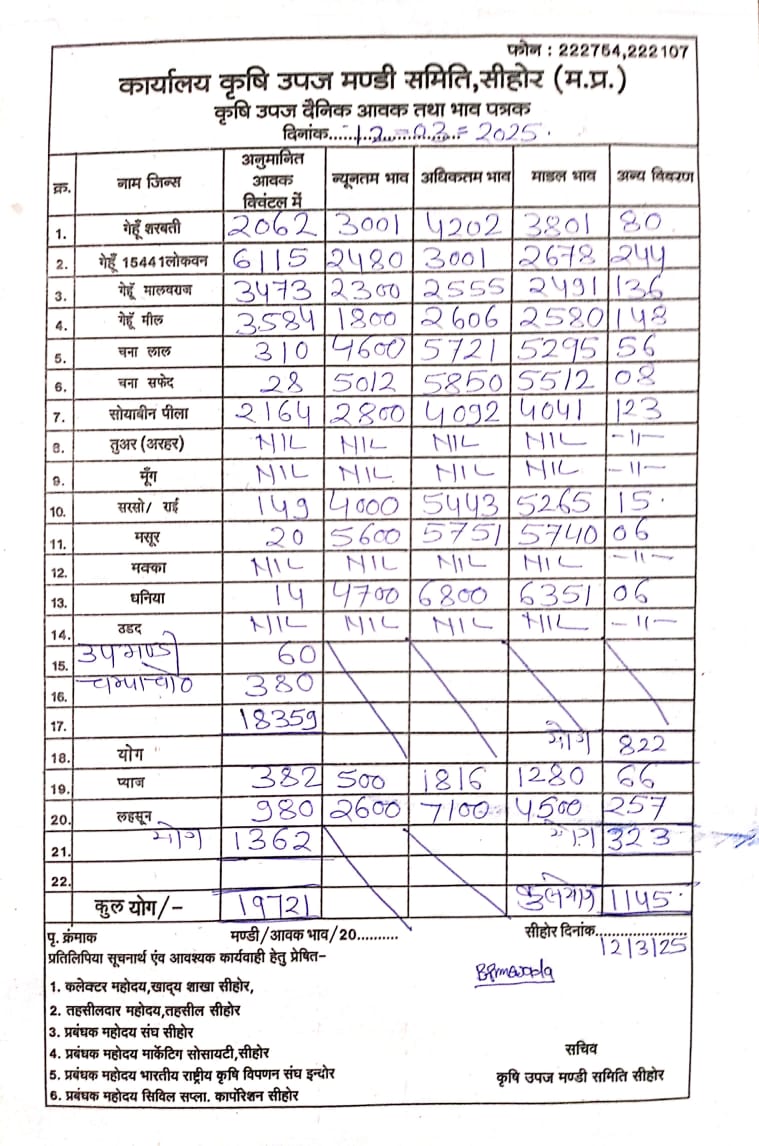 फोन : 222754,222107
कार्यालय कृषि उपज मण्डी समिति,सीहोर (म.प्र.)
कृषि उपज दैनिक आवक तथा भाव पत्रक
दिनांक......12-03=2025.
क्र. नाम जिन्स अनुमानित आवक विवंटल में न्यूनतम भाव अधिकतम भाव माडल भाव अन्य विवरण
1. गेहूँ शरबती 2062 3001 4202 3801 80
2. गेहूँ 15441लोकवन 6115 2480 3001 2678 244
3. गेहूँ मालवराज 3473 2300 2555 2491 136
4. गेहूँ मील 3584 1800 2606 2580 148
5. चना लाल 310 4600 5721 5295 56
6. चना सफेद 28 5012 5850 5512 08
7. सोयाबीन पीला 2164 2800 4092 4041 123
8. तुअर (अरहर) NIL NIL NIL NIL -11-
9. मूँग NIL NIL NIL NIL -11-
10. सरसो/ राई 149 4000 5443 5265 15.
11. मसूर 20 5600 5751 5740 06
12. मक्का NIL NIL NIL NIL -11-
13. धनिया 14 4700 6800 6351 06
14. उडद NIL NIL NIL NIL -11-
15. उपमण्डी 60
16. 380
17. 18359
18. योग योग 822
19. प्याज 382 500 1816 1280 66
20. लहसून 980 2600 7100 4500 257
21. योग 1362 योग 323
22.
कुल योग/- 19721 कुलयोग 1145.
पृ. क्रंमाक मण्डी/आवक भाव/20.......... सीहोर दिनांक......................
12/3/25
प्रतिलिपिया सूचनार्थ एंव आवश्यक कार्यवाही हेतु प्रेषित-
1. कलेक्टर महोदय,खाद्य शाखा सीहोर,
2. तहसीलदार महोदय,तहसील सीहोर
3. प्रबंधक महोदय संघ सीहोर
4. प्रबंधक महोदय मार्केटिग सोसायटी,सीहोर
सचिव
5. प्रबंधक महोदय भारतीय राष्ट्रीय कृषि विपणन संघ इन्दोर
कृषि उपज मण्डी समिति सीहोर
6. प्रबंधक महोदय सिविल सप्ला. कार्पोरेशन सीहोर